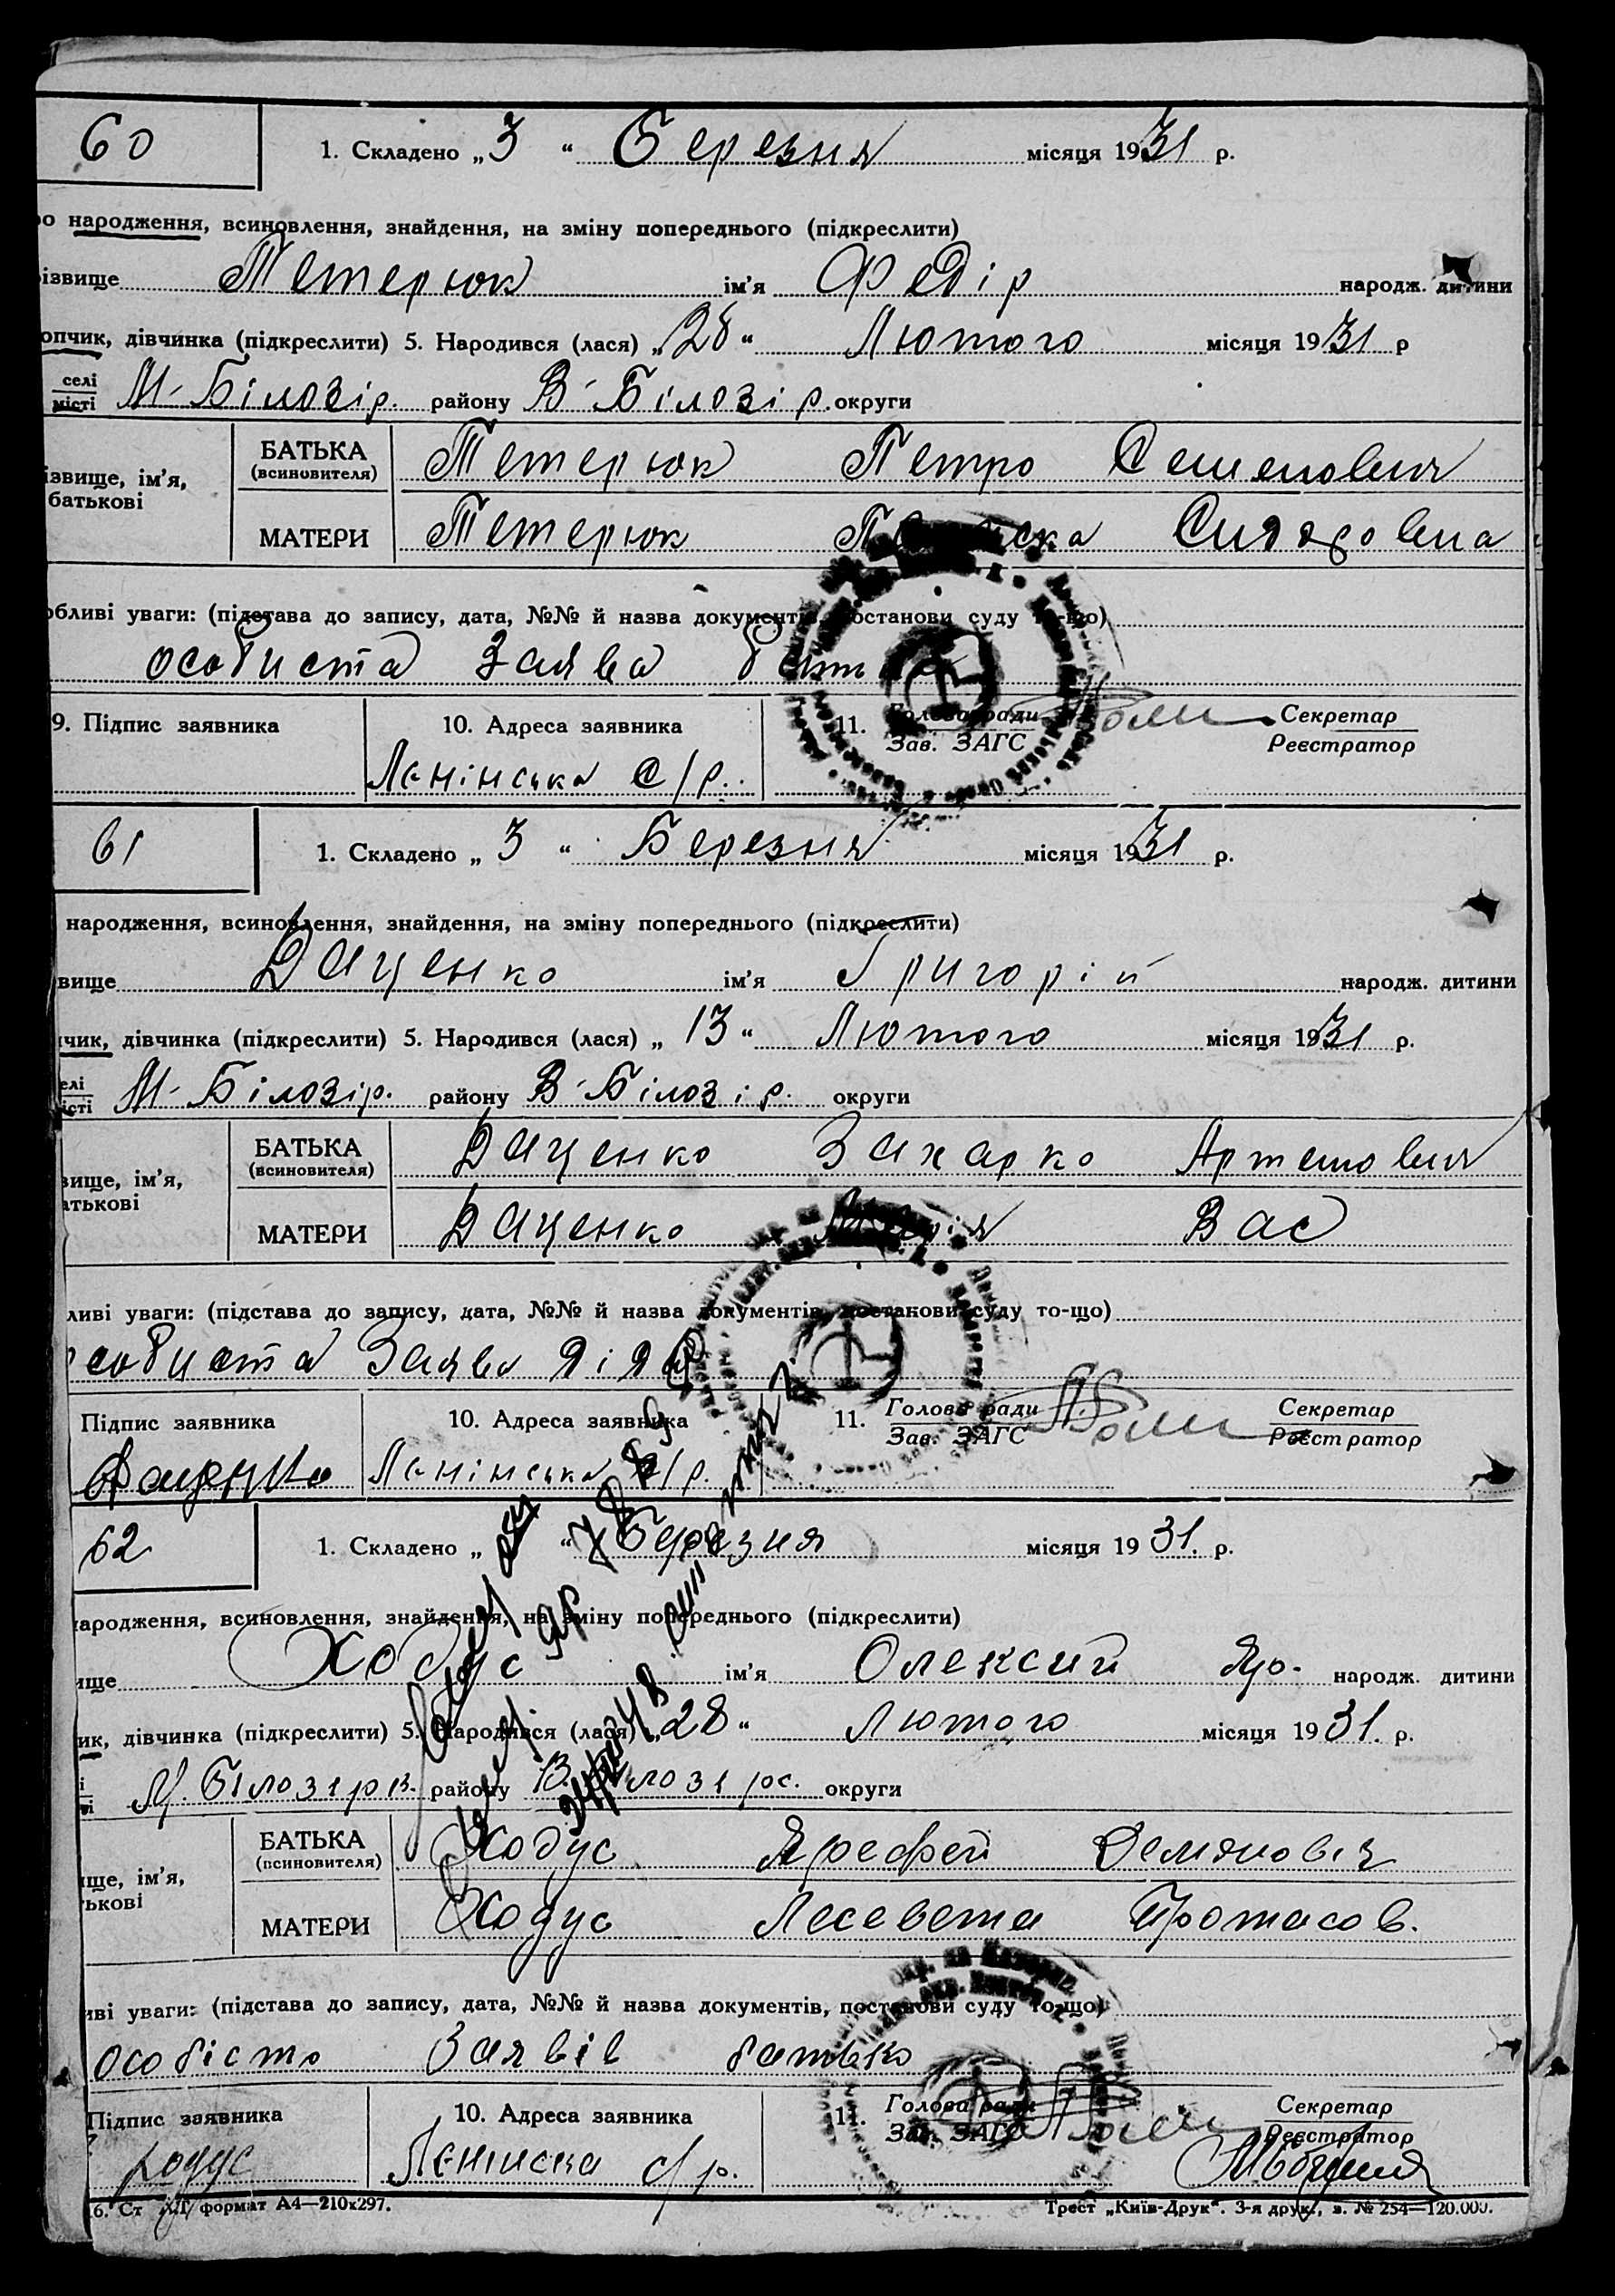 60
1. Складено „3“ Березня місяця 1931 р.
ро народження, всиновлення, знайдення, на зміну попереднього (підкреслити)
різвище Тетерюк ім'я Федір народж. дитини
опчик, дівчинка (підкреслити) 5. Народився (лася) „28“ Лютого місяця 1931 р
селі
місті М-Білозір. району В-Білозір. округи
БАТЬКА
(всиновителя) Тетерюк Петро Семенович
ізвище, ім'я,
батькові
МАТЕРИ Тетерюк
обливі уваги: (підстава до запису, дата, №№ й назва документів, постанови суду то-що)
особиста Заява
9. Підпис заявника 10. Адреса заявника 11. Голова ради Секретар
Зав. ЗАГС Реєстратор
Ленінська с/р.
61
1. Складено „3“ Березня місяця 1931 р.
народження, всиновлення, знайдення, на зміну попереднього (підкреслити)
вище Даценко ім'я Григорій народж. дитини
чик, дівчинка (підкреслити) 5. Народився (лася) „13“ Лютого місяця 1931 р.
елі
істі М-Білозір. району В-Білозір. округи
БАТЬКА
(всиновителя) Даценко Захарко Артемович
вище, ім'я,
атькові
МАТЕРИ Даценко Марія Вас
ливі уваги: (підстава до запису, дата, №№ й назва документів, постанови суду то-що)
особиста Заява
Підпис заявника 10. Адреса заявника 11. Голова ради Секретар
Зав. ЗАГС Реєстратор
Даценко Ленінська с/р.
62
1. Складено „ “ Березня місяця 1931. р.
народження, всиновлення, знайдення, на зміну попереднього (підкреслити)
ище Ходус ім'я Олексий Яро. народж. дитини
ик, дівчинка (підкреслити) 5. Народився (лася) „28“ Лютого місяця 1931. р.
і
ті М. Білозірк. району В. Білозірс. округи
БАТЬКА
(всиновителя) Ходус Ярофей Демянович
ище, ім'я,
ькові
МАТЕРИ Ходус Лесевета Протасов.
иві уваги: (підстава до запису, дата, №№ й назва документів, постанови суду то-що)
особісто Заявів батько
Підпис заявника 10. Адреса заявника 11. Голова ради Секретар
Зав. ЗАГС Реєстратор
Ходус Ленинска с/р.
6. Ст формат А4—210х297. Трест „Київ-Друк“. 3-я друк., з. № 254—120.000.